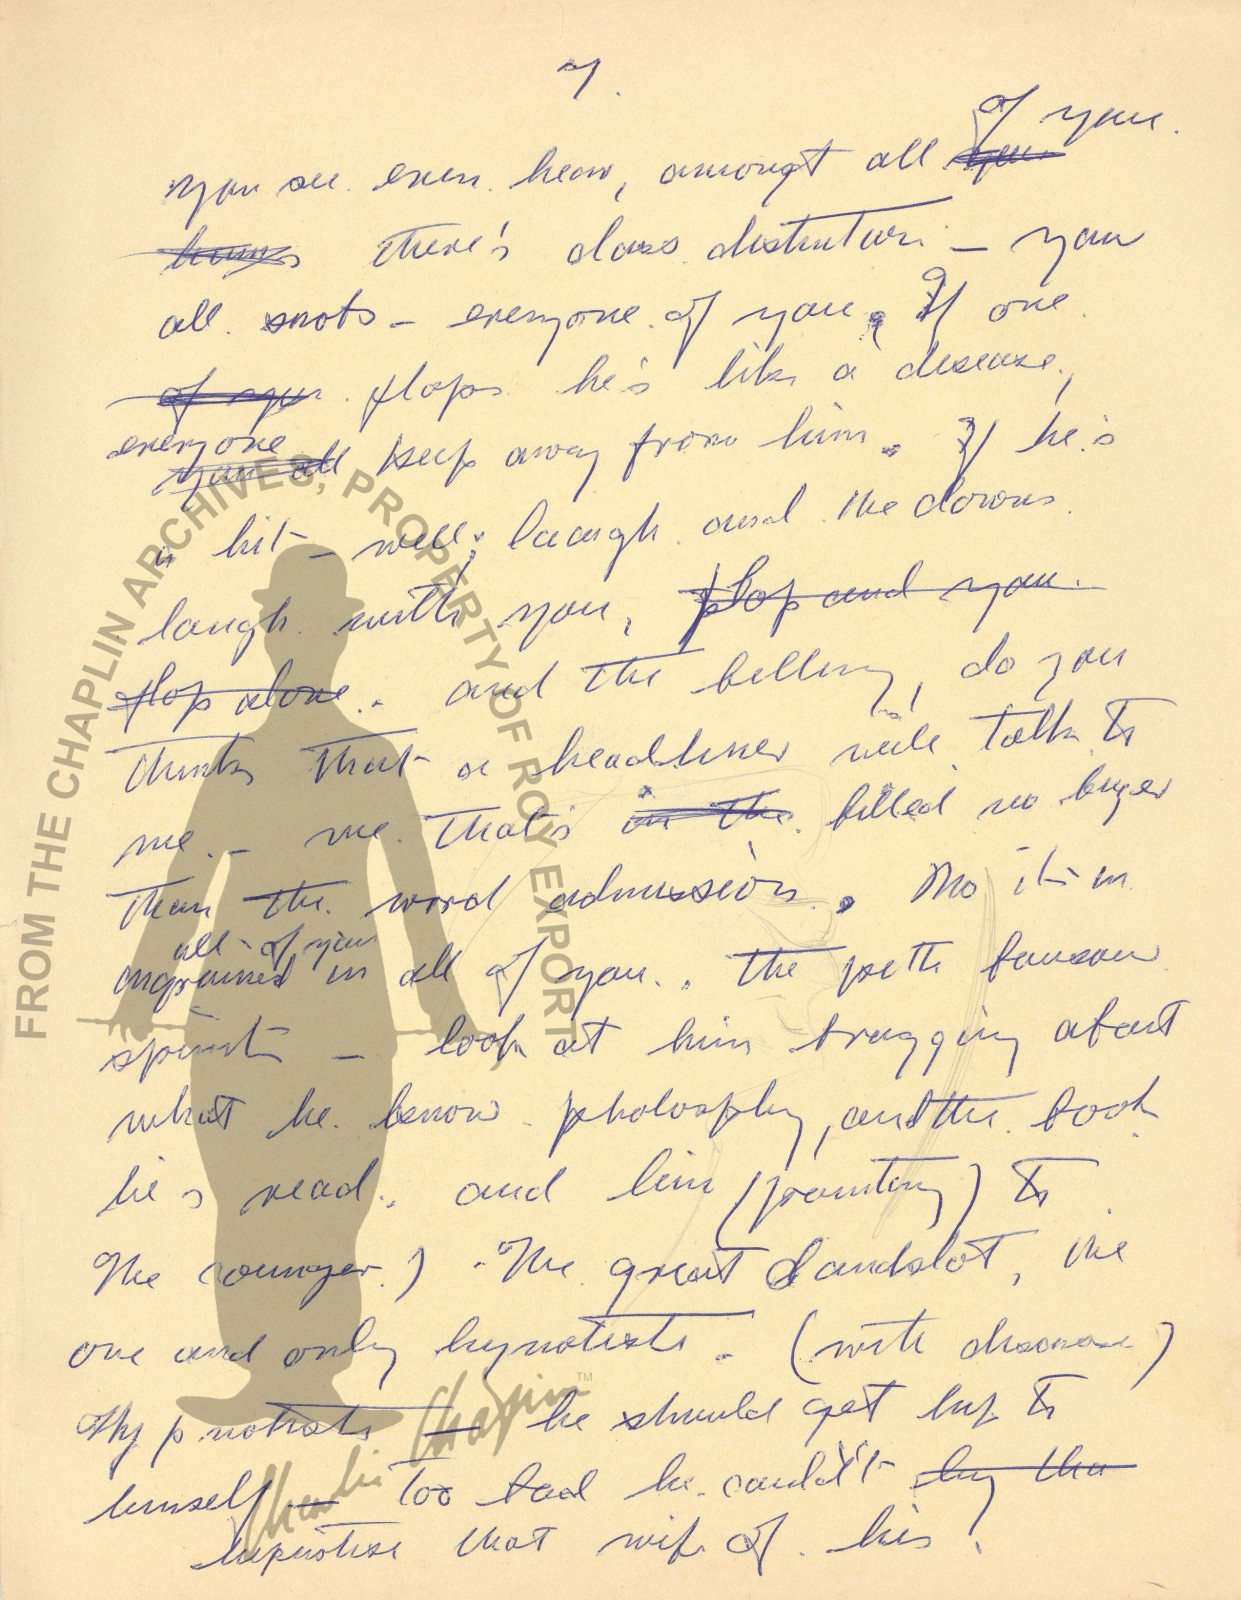 7.
of you.
you see even hear, amongst all you
there's class distintion – you
all snobs – everyone of you, If one
of you flops he's like a disease,
everyone
you all keep away from him. If he's
a hit – well; laugh and the clowns
laugh with you, flop and you
flop alone. and the billing, do you
think that a headliner will talk to
me – me that's in the billed no biger
than the word admission. No it's in
all of you
ingrained in all of you. The petti
spirit – look at him bragging about
what he know pholosophy, and the book
he's read. and him (pointing) to
the younger) The great Sandslot, the
one and only hypnotists. (with disease)
Hypnotists – he should get hip to
himself – Too bad he could't
hipnotise that wife of his!
FROM THE CHAPLIN ARCHIVES, PROPERTY OF ROY EXPORT
Charlie Chaplin™